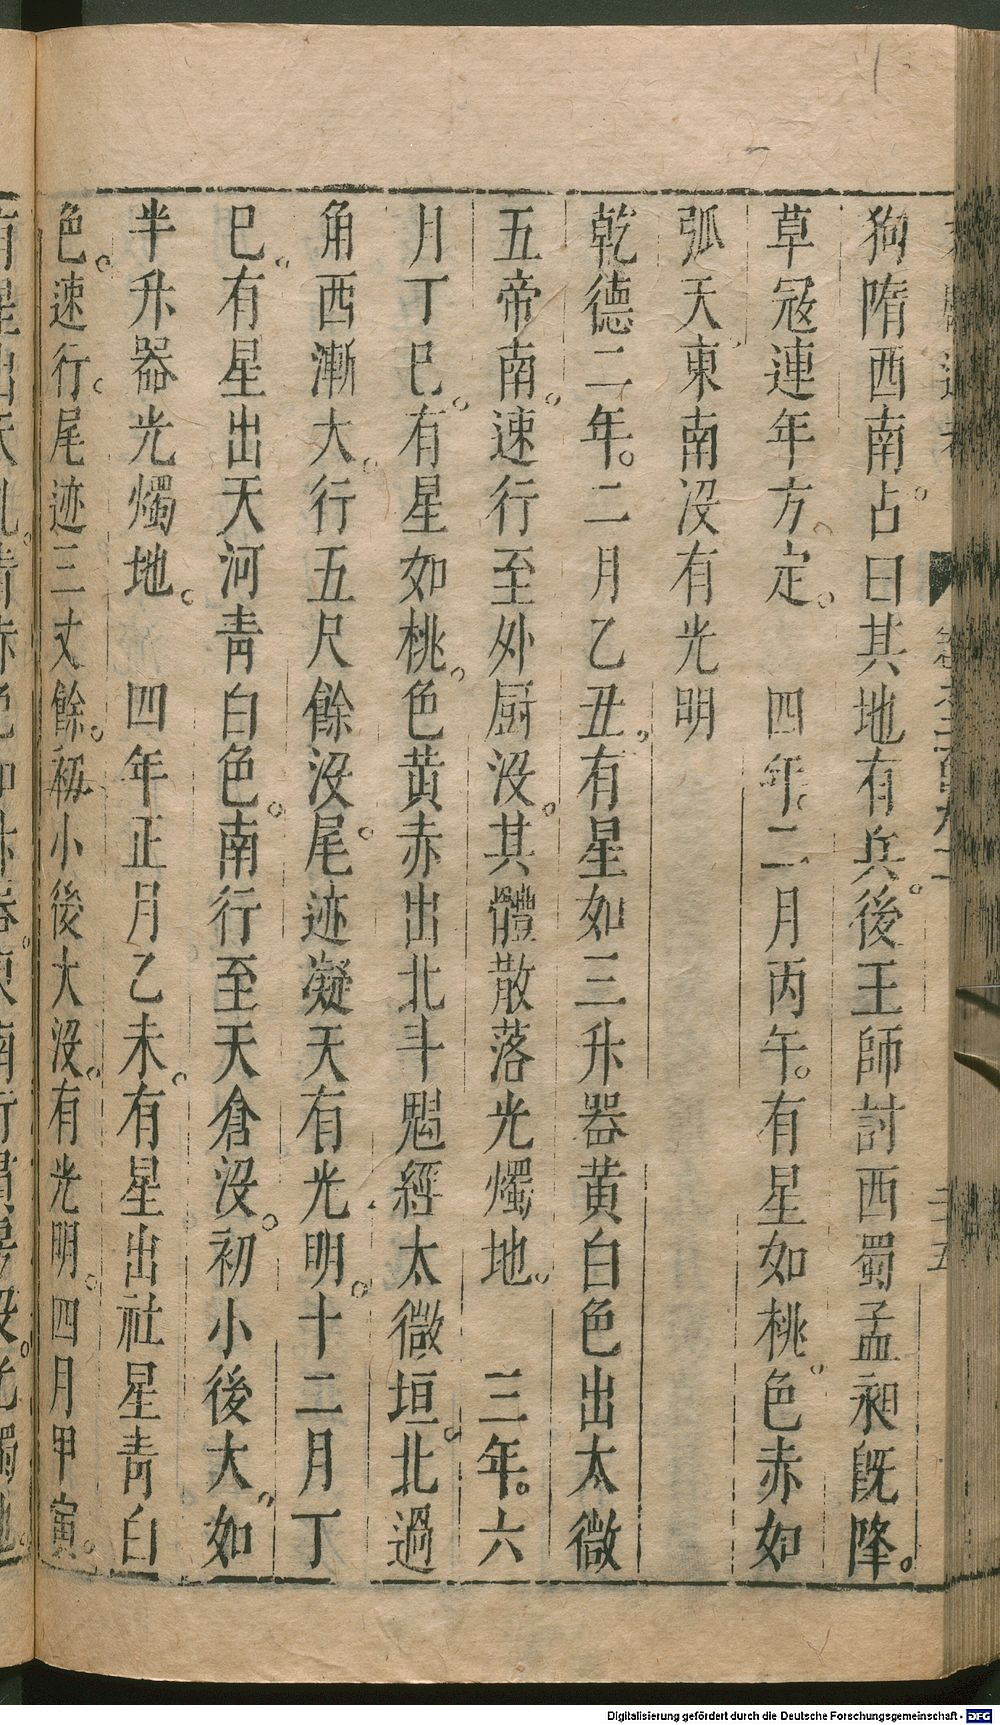 狗隋西南。占曰其地有兵。後王師討西蜀孟昶既降。
草冦連年方定。　四年。二月丙午。有星如桃。色赤如
弧天東南没有光明
乾德二年。二月乙丑。有星如三升器黄白色出太微
五帝南。速行至外厨没。其體散落光燭地。　三年。六
月丁巳。有星如桃。色黄赤出北斗魁經太微垣。北過
角西漸大。行五尺餘没。尾迹凝天有光明。十二月丁
巳。有星出天河青白色。南行至天倉没。初小後大。如
半升器光燭地。　四年正月乙未。有星出社星青白
色。速行。尾迹三丈餘。初小後大没。有光明。四月甲寅。
Digitalisierung gefördert durch die Deutsche Forschungsgemeinschaft - DFG